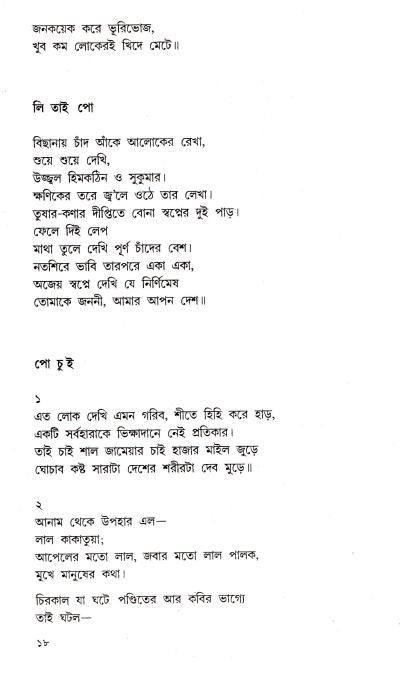 জনকয়েক করে ভূরিভোজ,
খুব কম লোকেরই খিদে মেটে॥
লি তাই পো
বিছানায় চাঁদ আঁকে আলোকের রেখা,
শুয়ে শুয়ে দেখি,
উজ্জ্বল হিমকঠিন ও সুকুমার।
ক্ষণিকের তরে জ্ব'লে ওঠে তার লেখা।
তুষার-কণার দীপ্তিতে বোনা স্বপ্নের দুই পাড়।
ফেলে দিই লেপ
মাথা তুলে দেখি পূর্ণ চাঁদের বেশ।
নতশিরে ভাবি তারপরে একা একা,
অজেয় স্বপ্নে দেখি যে নির্ণিমেষ
তোমাকে জননী, আমার আপন দেশ॥
পো চুই
১
এত লোক দেখি এমন গরিব, শীতে হিহি করে হাড়,
একটি সর্বহারাকে ভিক্ষাদানে নেই প্রতিকার।
তাই চাই শাল জামেয়ার চাই হাজার মাইল জুড়ে
ঘোচাব কষ্ট সারাটা দেশের শরীরটা দেব মুড়ে॥
২
আনাম থেকে উপহার এল—
লাল কাকাতুয়া;
আপেলের মতো লাল, জবার মতো লাল পালক,
মুখে মানুষের কথা।
চিরকাল যা ঘটে পণ্ডিতের আর কবির ভাগ্যে
তাই ঘটল—
১৮